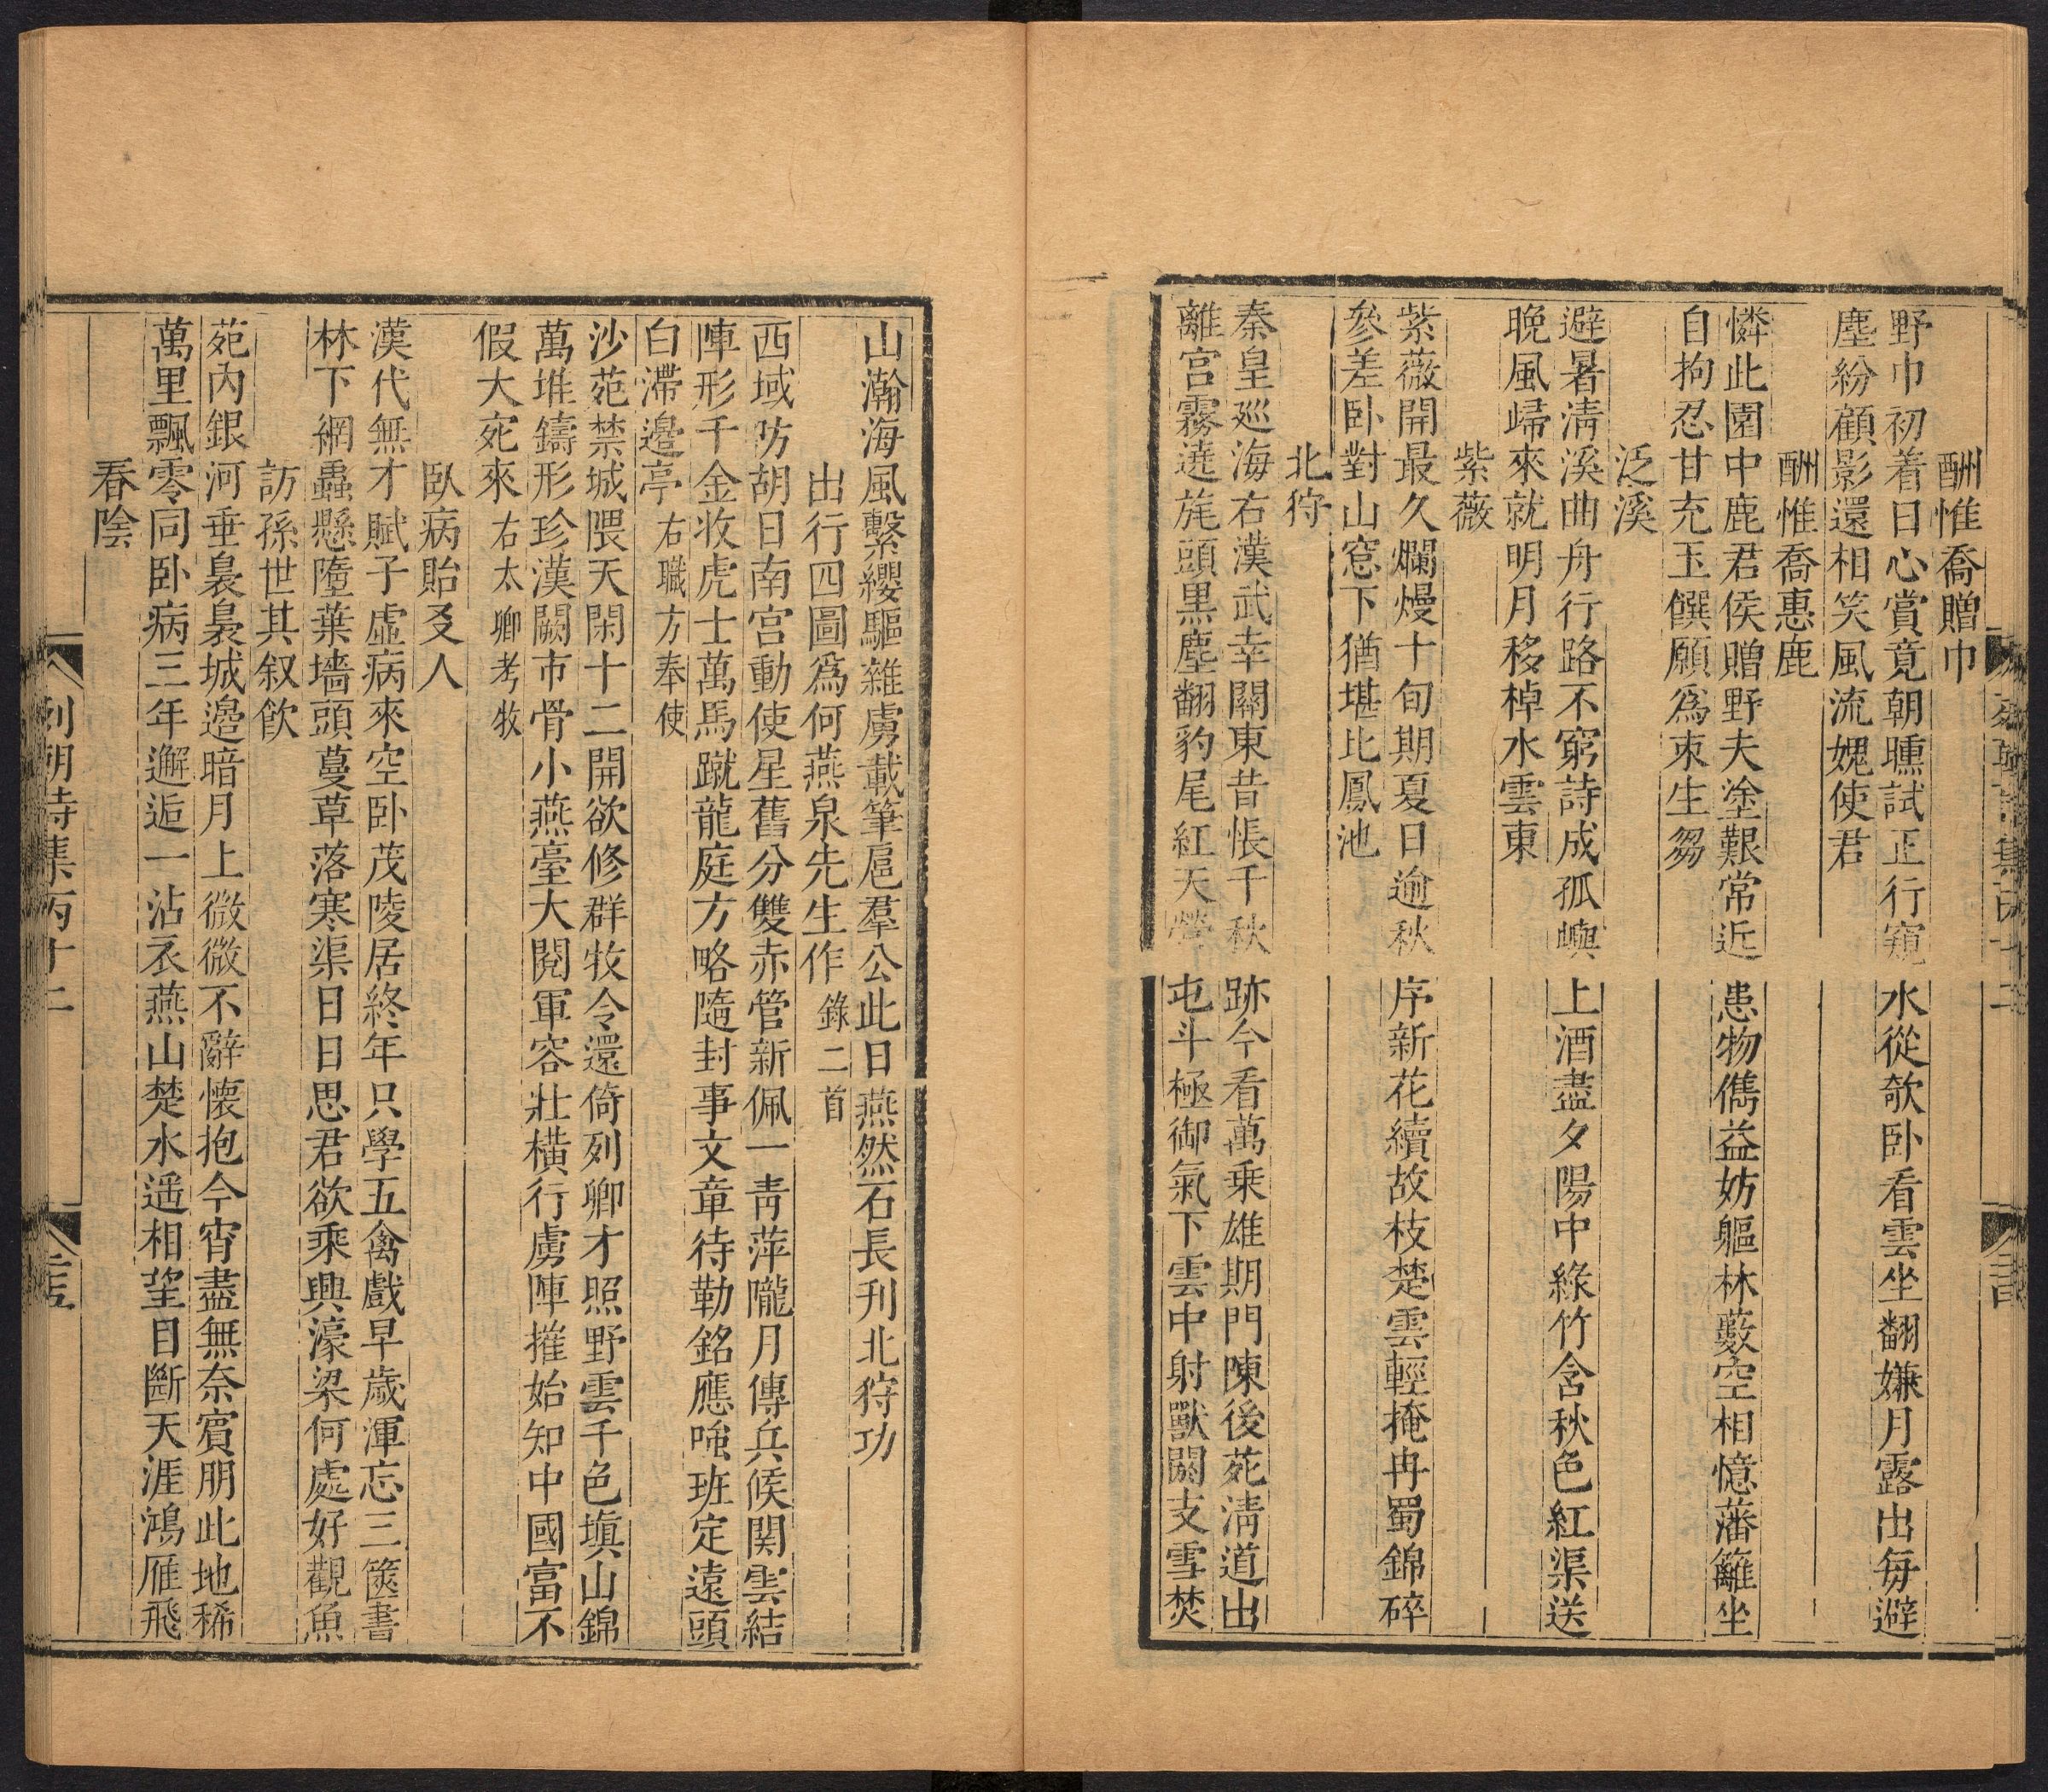 酬惟喬贈巾
野巾初着日心賞竟朝曛試正行窺水從欹卧看雲坐翻嫌月露出每避
塵紛顧影還相笑風流媿使君
酬惟喬惠鹿
憐此園中鹿君侯贈野夫塗艱常近患物儁益妨軀林藪空相憶藩籬坐
自拘忍甘充玉饌願為束生芻
泛溪
避暑淸溪曲舟行路不窮詩成孤嶼上酒盡夕陽中綠竹含秋色紅渠送
晚風歸來就明月移棹水雲東
紫薇
紫薇開最久爛熳十旬期夏日逾秋序新花續故枝楚雲輕掩冉蜀錦碎
參差卧對山窓下猶堪比鳳池
北狩
秦皇巡海右漢武幸關東昔悵千秋跡今看萬乗雄期門陳後苑淸道出
離宮霧遶旄頭黒塵翻豹尾紅天營屯斗極御氣下雲中射獸閼支雪焚
山瀚海風繫纓驅雜虜載筆扈羣公此日燕然石長刋北狩功
出行四圖爲何燕泉先生作 錄二首
西域防胡日南宫動使星舊分雙赤管新佩一靑萍隴月傳兵候関雲結
陣形千金收虎士萬馬蹴龍庭方略隨封事文章待勒銘應嗤班定遠頭
白滯邉亭 右職方奉使
沙苑禁城隈天閑十二開欲修群牧令還倚列卿才照野雲千色塡山錦
萬堆鑄形珍漢闕市骨小燕臺大閱軍容壯橫行虜陣摧始知中國富不
假大宛來 右太卿考牧
臥病貽友人
漢代無才賦子虛病來空卧茂陵居終年只學五禽戲早歲渾忘三篋書
林下網蟲懸墮葉墻頭蔓草落寒渠日日思君欲乘興濠梁何處好觀魚
訪孫世其叙飲
苑內銀河垂裊裊城邉暗月上微微不辭懷抱今宵盡無奈賓朋此地稀
萬里飄零同卧病三年邂逅一沾衣燕山楚水遥相望目斷天涯鴻雁飛
春陰
列朝詩集丙十二